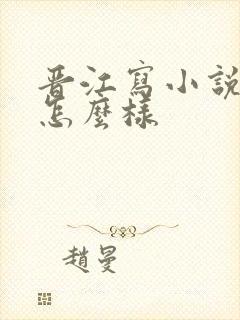 晋江寫小說
怎麼樣
趙曼